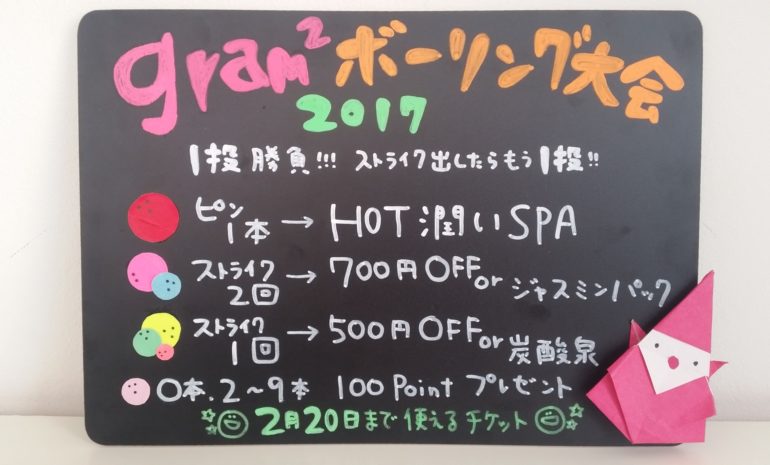 gram² ボーリング大会
2017
1投勝負!!! ストライク出したらもう1投!!
ピン1本 → HOT潤いSPA
ストライク2回 → 700円OFF or ジャスミンパック
ストライク1回 → 500円OFF or 炭酸泉
0本.2~9本 100Point プレゼント
2月20日まで使えるチケット